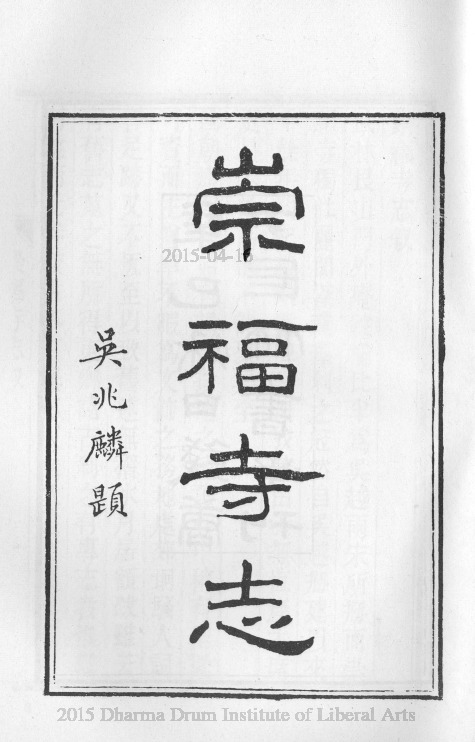 崇福寺志
吳兆麟題
2015-04-1
2015 Dharma Drum Institute of Liberal Arts